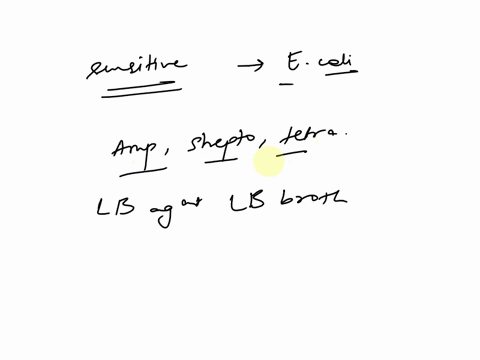 sensitive → E. coli
Amp, strepto, tetra.
LB agar LB broth